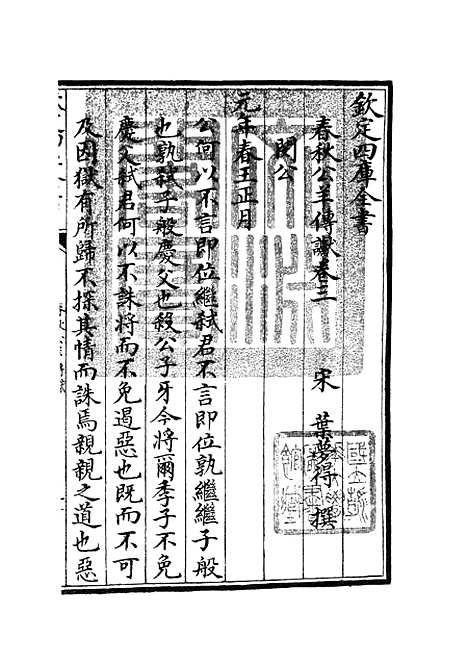 欽定四庫全書
春秋公羊傳讞卷三
宋 葉夢得 撰
閔公
元年春王正月
公何以不言即位繼弑君不言即位孰繼繼子般
也孰弑子般慶父也殺公子牙今將爾季子不免
慶父弑君何以不誅將而不免遏惡也既而不可
及因獄有所歸不探其情而誅焉親親之道也惡